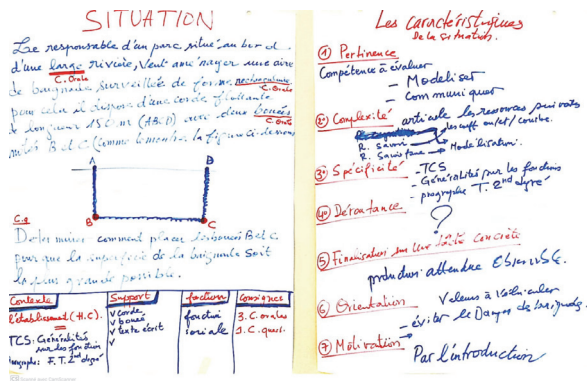 SITUATION
Le responsable d'un parc situé au bord
d'une large rivière, veut aménager une aire
C. Orale
de baignade surveillée de forme rectangulaire
C. Orale
pour cela il dispose d'une corde flottante
de longueur 150 m (AB; D) avec deux bouées
C. Orale
B et C. (comme le montre la figure ci-dessous
A
B
C.q
B
C
Déterminer comment placer les bouées B et C
pour que la superficie de la baignade soit
la plus grande possible.
Contexte
Support
fonction
Consignes
l'établissement (H.C).
TCS: Généralités
sur les fonction
F. T. 2nd degré
v corde
v bouée
v texte écrit
v
fonction
sociale
3. C. orales
1. C. ques.
Les caractéristiques
de la situation.
① Pertinence
Compétence à évaluer
- Modeliser
- communiquer
2° Complexité
articule les ressources suivants
R. Savoir
R. Savoir faire → Modélisation.
3° Spécificité
- TCS
- Généralités sur les fonctions
- T. 2nd degré
4°
?
⑤ Finalisation sur une tâche concrète
production attendue Observable.
⑥ Orientation
Valeurs à véhiculer
- éviter le Danger des
⑦ Motivation
Par l'introduction